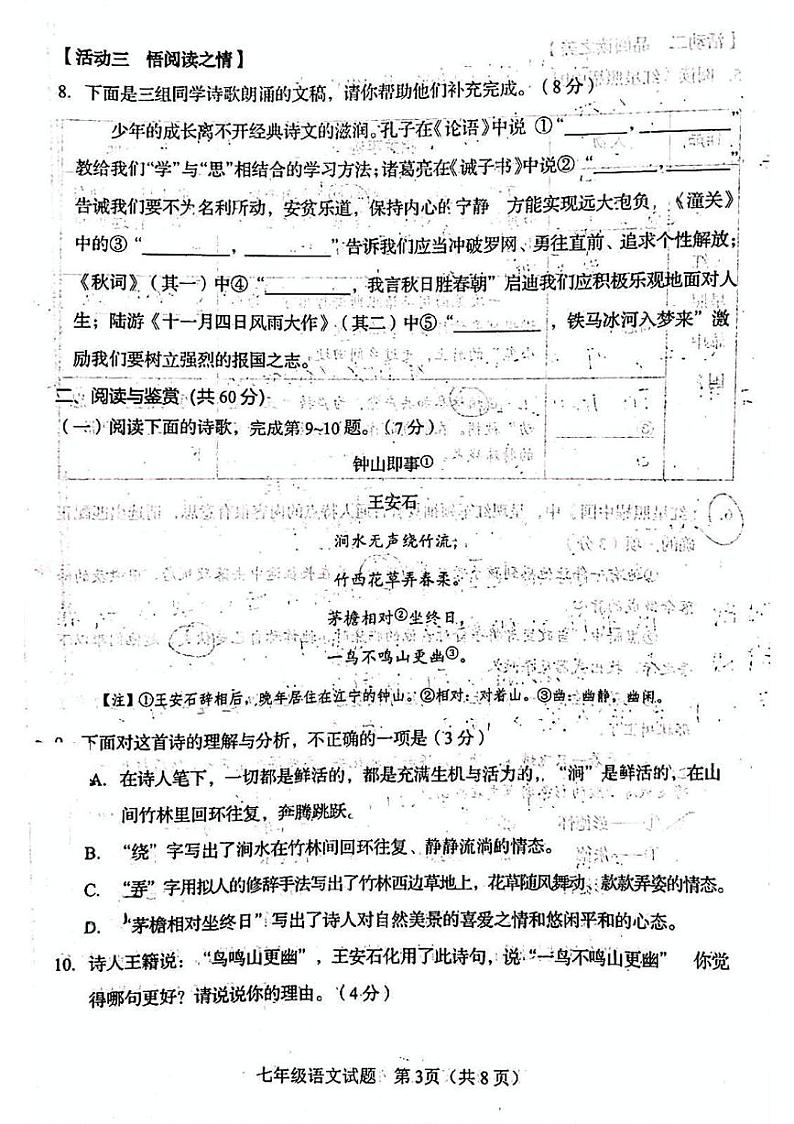 【活动三 悟阅读之情】
8. 下面是三组同学诗歌朗诵的文稿，请你帮助他们补充完成。（8分）
少年的成长离不开经典诗文的滋润。孔子在《论语》中说 ①“________，________”
教给我们“学”与“思”相结合的学习方法；诸葛亮在《诫子书》中说② “________，________”
告诫我们要不为名利所动，安贫乐道，保持内心的宁静 方能实现远大抱负，《潼关》
中的③ “________，________”告诉我们应当冲破罗网、勇往直前、追求个性解放；
《秋词》（其一）中④ “________，我言秋日胜春朝”启迪我们应积极乐观地面对人
生；陆游《十一月四日风雨大作》（其二）中⑤ “________，铁马冰河入梦来” 激
励我们要树立强烈的报国之志。
二、阅读与鉴赏（共60分）
（一）阅读下面的诗歌，完成第9~10题。（7分）
钟山即事①
王安石
涧水无声绕竹流，
竹西花草弄春柔。
茅檐相对②坐终日，
一鸟不鸣山更幽③。
【注】①王安石辞相后，晚年居住在江宁的钟山。②相对：对着山。③幽：幽静，幽闲。
下面对这首诗的理解与分析，不正确的一项是（3分）
A. 在诗人笔下，一切都是鲜活的，都是充满生机与活力的，“涧”是鲜活的，在山
间竹林里回环往复，奔腾跳跃。
B. “绕”字写出了涧水在竹林间回环往复、静静流淌的情态。
C. “弄”字用拟人的修辞手法写出了竹林西边草地上，花草随风舞动、款款弄姿的情态。
D. “茅檐相对坐终日”写出了诗人对自然美景的喜爱之情和悠闲平和的心态。
10. 诗人王籍说：“鸟鸣山更幽”，王安石化用了此诗句，说“一鸟不鸣山更幽” 你觉
得哪句更好？请说说你的理由。（4分）
七年级语文试题 第3页（共8页）